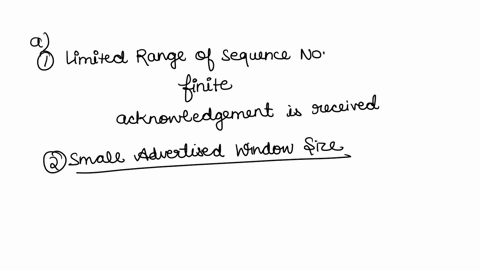 a)
① Limited Range of Sequence No.
finite
acknowledgement is received
② Small Advertised Window Size